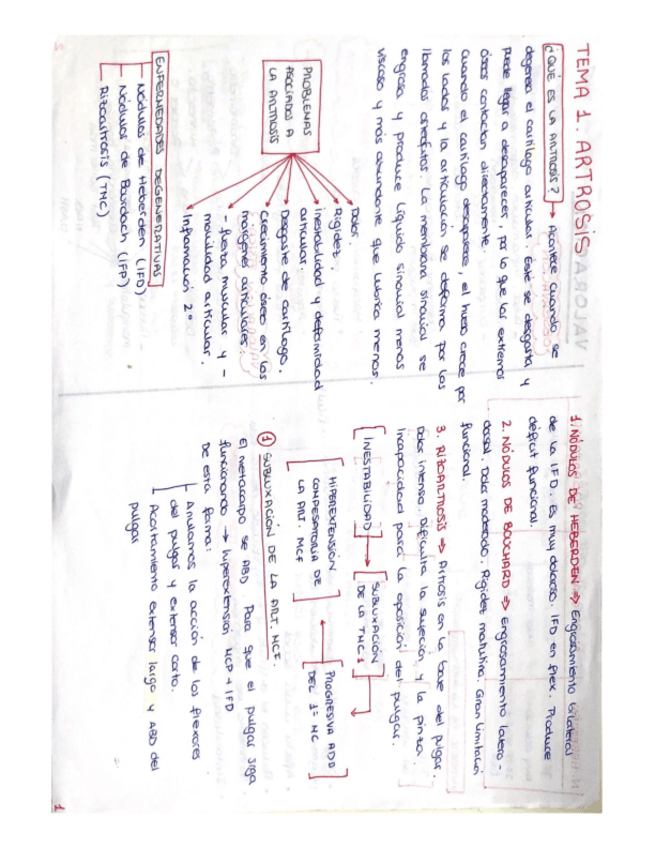 TEMA 1. ARTROSIS
¿QUÉ ES LA ARTROSIS? → Acontece cuando se
degenera el cartílago articular. Éste se desgasta y
puede llegar a desaparecer, por lo que los extremos
óseos contactan directamente.
Cuando el cartílago desaparece, el hueso crece por
los lados y la articulación se deforma por los
llamados osteofitos. La membrana sinovial se
engrosa y produce líquido sinovial menos
viscoso y más abundante que lubrica menos.
PROBLEMAS
ASOCIADOS A
LA ARTROSIS
Dolor.
Rigidez.
Inestabilidad y deformidad
articular.
Desgaste de cartílago.
Crecimiento óseo en los
márgenes articulares.
- fuerza muscular y -
movilidad articular.
Inflamación 2º
ENFERMEDADES DEGENERATIVAS
Nódulos de Heberden (IFD)
Nódulos de Bouchard (IFP)
Rizoartrosis (TMC)
1. NÓDULOS DE HEBERDEN ⇒ Engrosamiento bilateral
de la IFD. Es muy doloroso. IFD en flex. Produce
déficit funcional.
2. NÓDULOS DE BOUCHARD ⇒ Engrosamiento latero-
dorsal. Dolor moderado. Rigidez matutina. Gran limitación
funcional.
3. RIZOARTROSIS ⇒ Artrosis en la base del pulgar.
Dolor intenso. Dificulta la sujeción y la pinza.
Incapacidad para la oposición del pulgar.
INESTABILIDAD → SUBLUXACIÓN
DE LA TMC1
HIPEREXTENSIÓN
COMPESATORIA DE
LA ART. MCF
← PROGRESIVA ADD
DEL 1º MC
① SUBLUXACIÓN DE LA ART. MCF.
El metacarpo se ABD. Para que el pulgar siga
funcionando → hiperextensión MCP + IFD
De esta forma:
Anulamos la acción de los flexores
del pulgar y extensor corto.
Acortamiento extensor largo y ABD del
pulgar
1